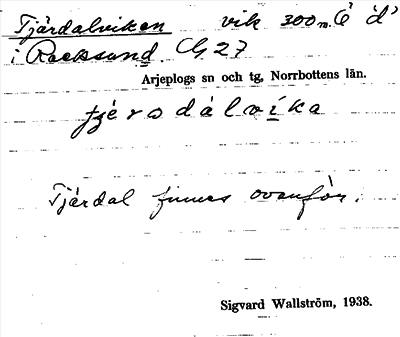 Tjärdalviken vik 300 m. Ö 'd'
i Racksund G 27
Arjeplogs sn och tg, Norrbottens län.
tjérodálvíka
Tjärdal finnes ovanför.
Sigvard Wallström, 1938.